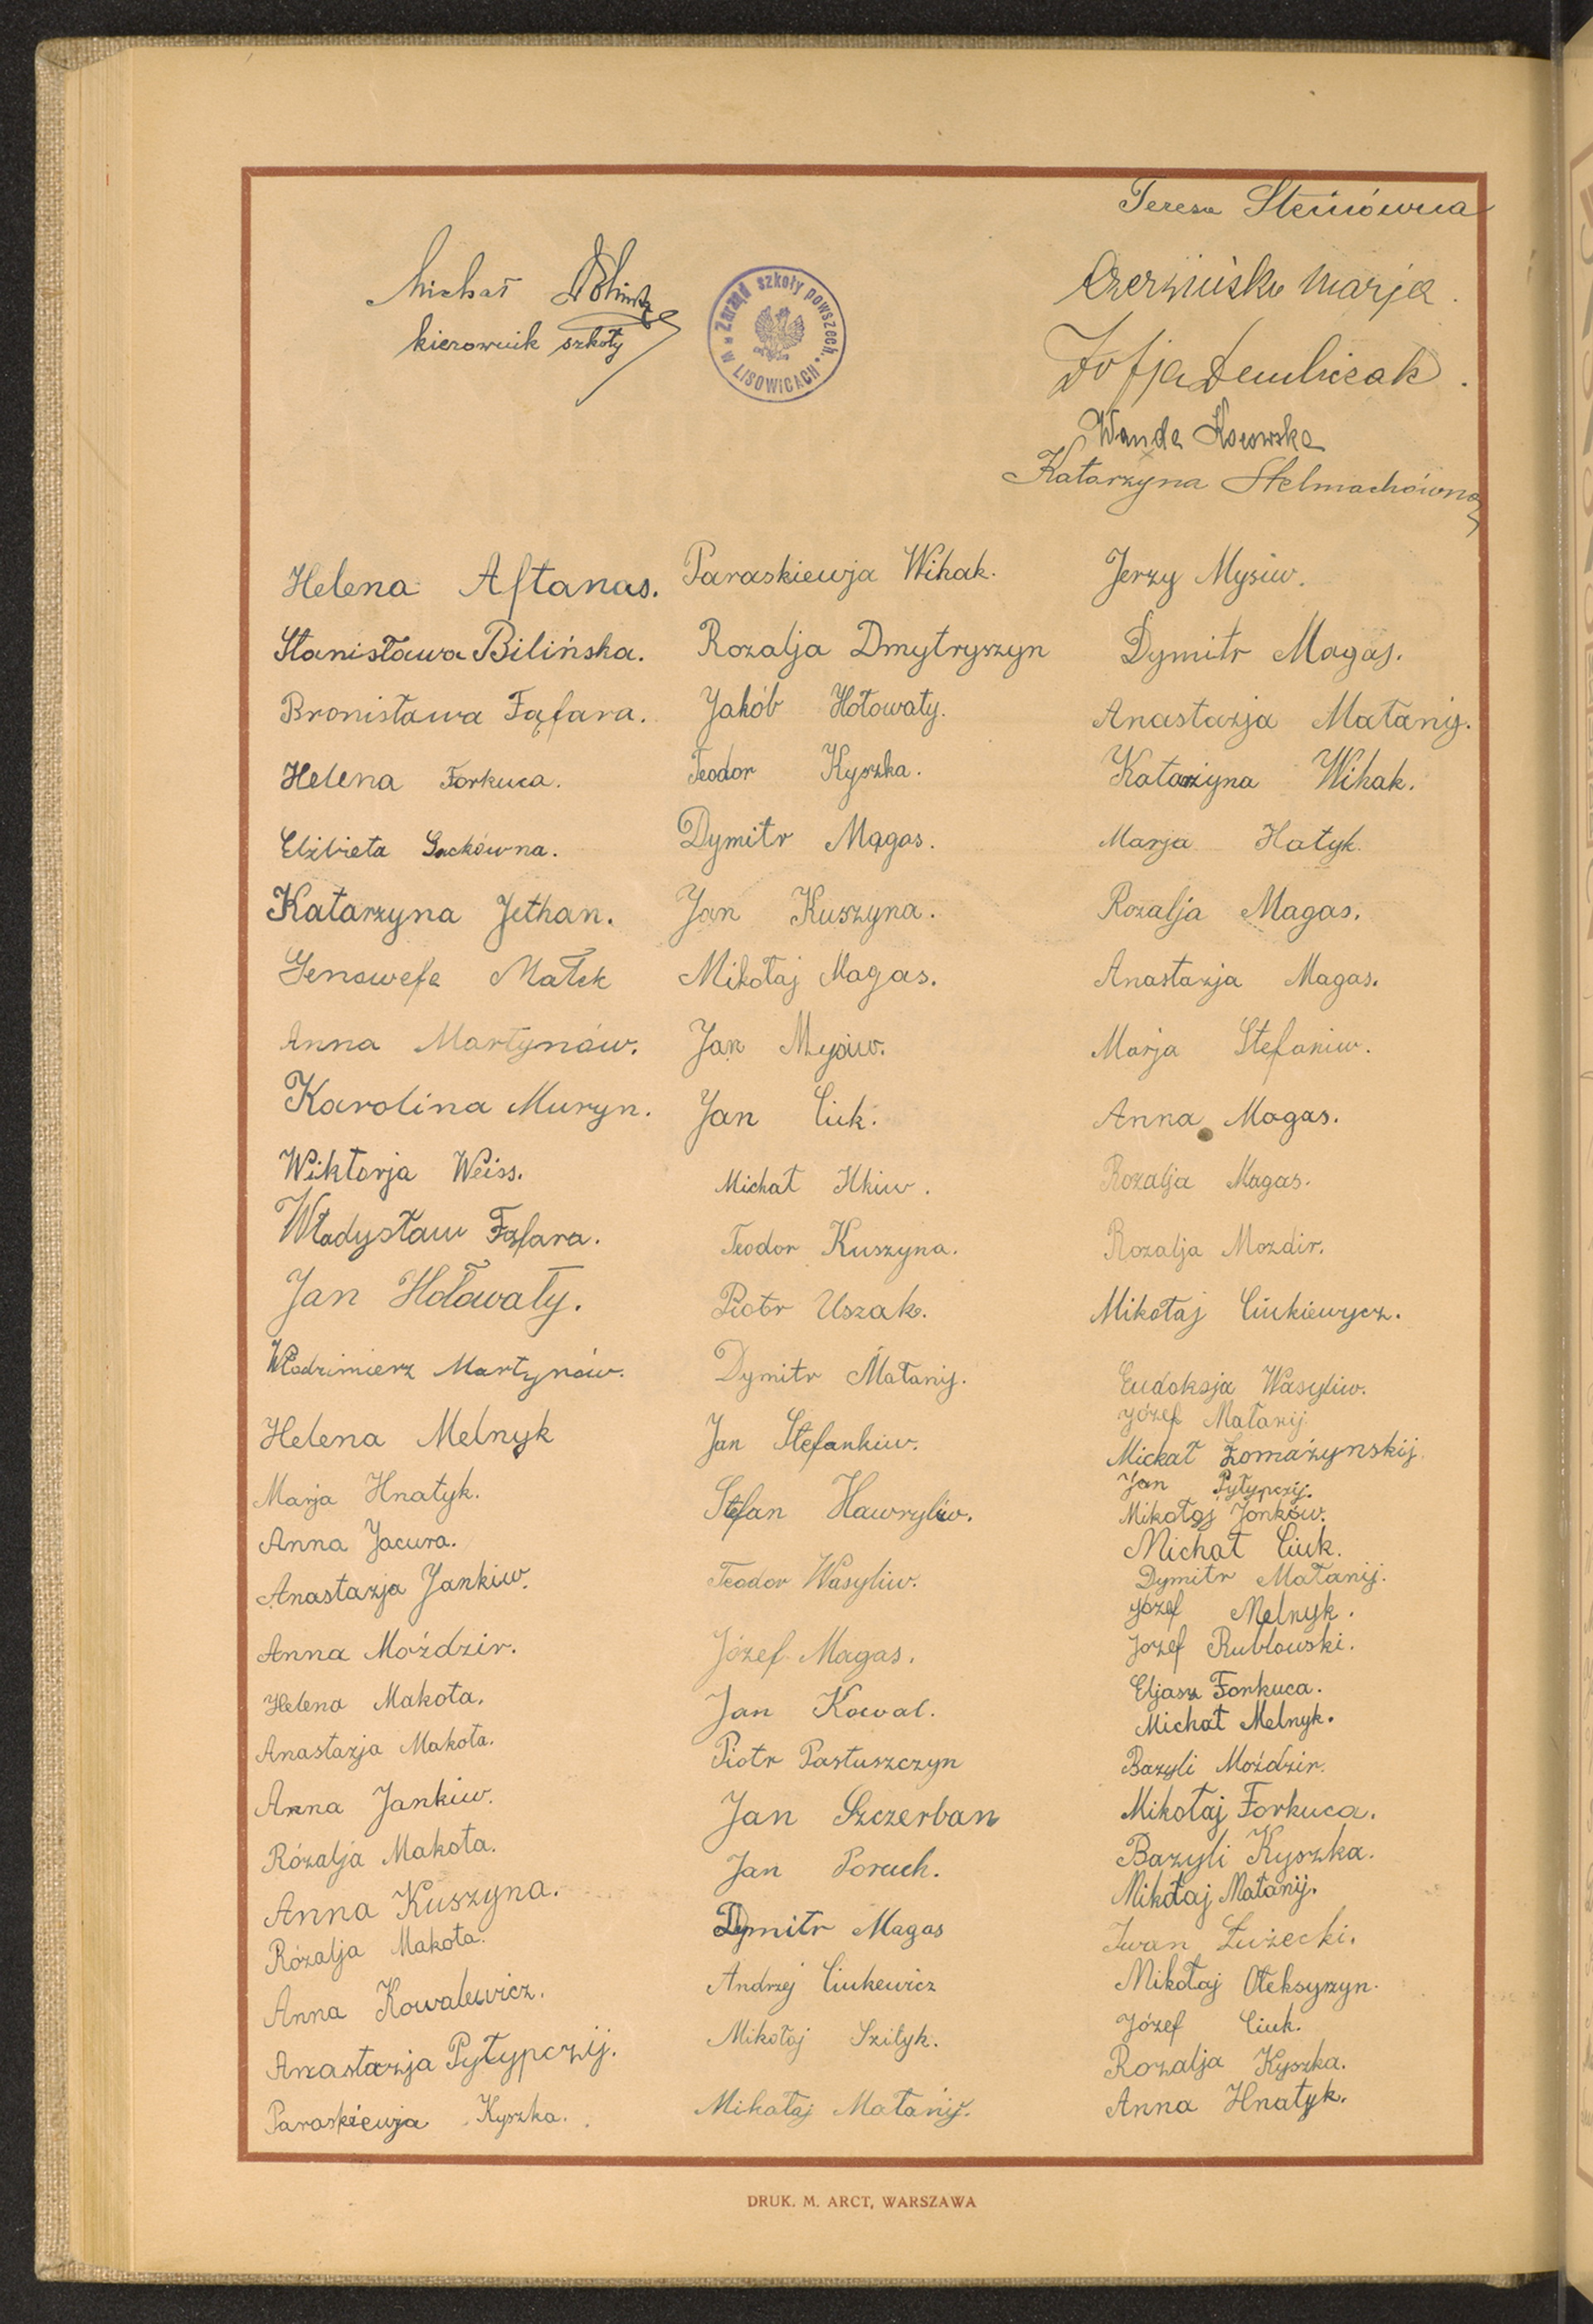 Teresa Steinówna
Michał
kierownik szkoły
Zarząd szkoły powszech. w LISOWICACH
Czerwińska Marja.
Zofja Dembiczak.
Wanda Kosowska
Katarzyna Stelmachówna
Helena Aftanas.
Stanisława Bilińska.
Bronisława Fąfara.
Helena Forkuca.
Elżbieta Gackówna.
Katarzyna Jethan.
Genowefa Małek
Anna Martynów.
Karolina Muryn.
Wiktorja Weiss.
Władysław Fąfara.
Jan Hołowaty.
Włodzimierz Martynów.
Helena Melnyk
Marja Hnatyk.
Anna Jacura.
Anastazja Jankiw.
Anna Moździr.
Helena Makota.
Anastazja Makota.
Anna Jankiw.
Rózalja Makota.
Anna Kuszyna.
Rózalja Makota.
Anna Kowalewicz.
Anastazja Pyłypczij.
Paraskiewja Kyszka.
Paraskiewja Wihak.
Rozalja Dmytryszyn
Jakób Hołowaty.
Teodor Kyszka.
Dymitr Magas.
Jan Kuszyna.
Mikołaj Magas.
Jan Mysiw.
Jan Ciuk.
Michał Ilkiw.
Teodor Kuszyna.
Piotr Uszak.
Dymitr Małanij.
Jan Stefankiw.
Stefan Hawryliw.
Teodor Wasyliw.
Józef Magas.
Jan Kowal.
Piotr Pastuszczyn
Jan Szczerban
Jan Poruch.
Dymitr Magas
Andrzej Ciukewicz
Mikołaj Szilyk.
Mikołaj Małanij.
Jerzy Mysiw.
Dymitr Magas.
Anastazja Małanij.
Katarzyna Wihak.
Marja Hatyk.
Rozalja Magas.
Anastazja Magas.
Marja Stefaniw.
Anna Magas.
Rozalja Magas.
Rozalja Mozdir.
Mikołaj Ciukiewycz.
Eudoksja Wasyliw.
Józef Małanij.
Michał Łomażynskij.
Jan Pyłypczij.
Mikołaj Jonków.
Michał Ciuk.
Dymitr Małanij.
Józef Melnyk.
Jozef Rubłowski.
Eljasz Forkuca.
Michał Melnyk.
Bazyli Moździr.
Mikołaj Forkuca.
Bazyli Kyszka.
Mikołaj Małanij.
Iwan Łużecki.
Mikołaj Ołeksyszyn.
Józef Ciuk.
Rozalja Kyszka.
Anna Hnatyk.
DRUK. M. ARCT, WARSZAWA